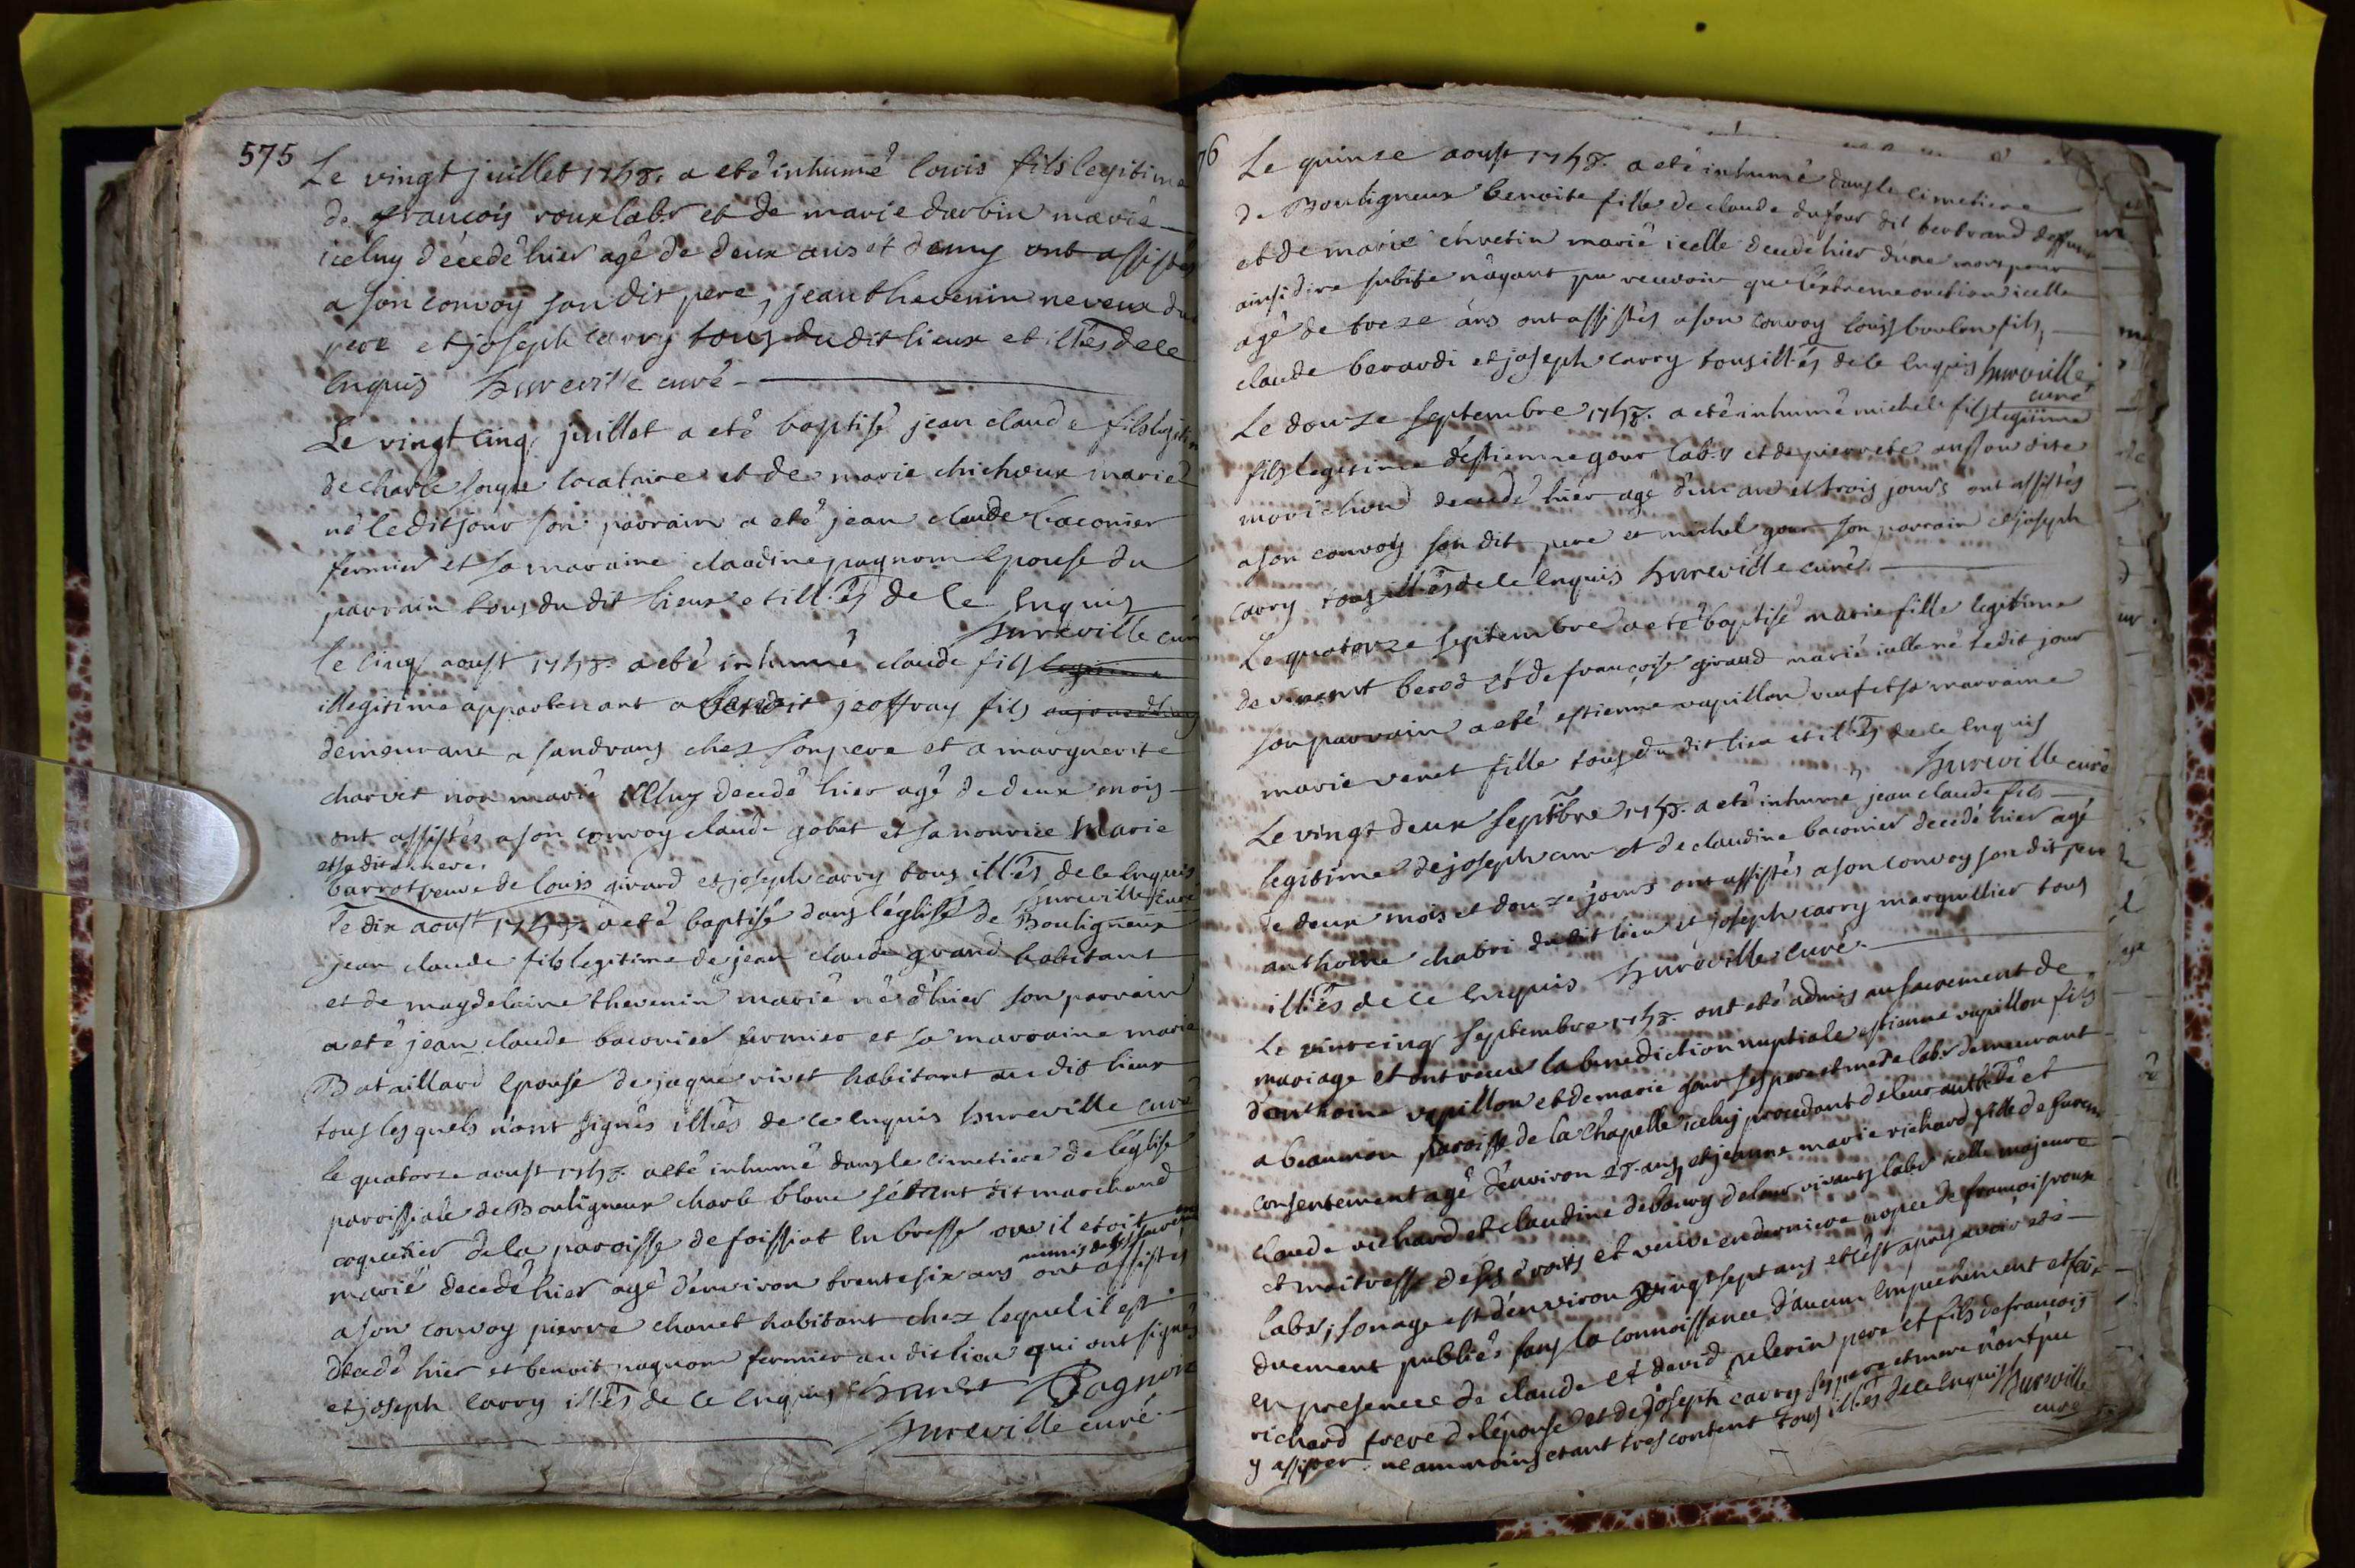 575
Le vingt juillet 1758. a eté inhumé louis fils legitime
de francois roux labr et de marie darbin marié
iceluy décedé hier agé de deux ans et demy ont assistés
a son convoy son dit pere, jean thevenin neveux du
pere et joseph carry tous du dit lieux et illés de ce
enquis hureville curé
Le vingt cinq juillet a eté baptisé jean claude fils legitim
de charle locataire et de marie chicheux marié
né le dit jour son parrain a eté jean claude baconier
fermier et sa maraine claudine pagnon epouse du
parrain tous du dit lieux et ill.és de ce enquis
hureville curé
le cinq aoust 1758. a eté inhumé claude fils legitime
illegitime appartenant a benoit jeoffray fils aujourdhuy
demeurant a sandrans chez son pere et a marguerite
charvet non marié icelluy decedé hier agé de deux mois
ont assistés a son convoy claude gobet et sa nourrice Marie
et sa dite mere.
barrot veuve de louis girard et joseph carry tous ill.és de ce enquis
hureville curé
le dix aoust 1758 a eté baptisé dans l'église de Bouligneux
jean claude fils legitime de jean claude grand habitant
et de magdelaine thevenin marié né d'hier son parrain
a eté jean claude baconier fermier et sa marraine marie
Bataillard epouse de jaque rivet habitant au dit lieux
tous lesquels n'ont signés illés de ce enquis hureville curé
le quatorze aoust 1758. a eté inhumé dans le cimetiere de l'église
paroissiale de Bouligneux charle blanc s'étant dit marchand
coquetier de la paroisse de foissiat en bresse ou il etoit
marié decedé hier agé d'environ trente six ans ont assistés
a son convoy pierre chanet habitant chez lequel il est
decedé hier et benoit pagnon fermier au dit lieu qui ont signés
et joseph carry illés de ce enquis Chanet Pagnon
hureville curé.
76
Le quinze aoust 1758. a eté inhumé dans le cimetiere
de Bouligneux benoite fille de claude dufour dit bertrand deffunt
et de marie chretin marié icelle decedé hier d'une mort pour
ainsi dire subite n'ayant pu recevoir que l'extreme onction icelle
agé de treze ans ont assistés a son convoy louis boulon fils,
claude berardi et joseph carry tous ill.és de ce enquis hureville
curé
Le douze septembre 1758. a eté inhumé michel fils legitime
fils legitime d'estienne gour labr et de pierrete ansou dite
morichon decedé hier agé d'un an et trois jours ont assistés
a son convoy son dit pere et michel gour son parrain et joseph
carry tous ill.és de ce enquis hureville curé
Le quatorze septembre a eté baptisé marie fille legitime
de vincent berod et de françoise giraud marié icelle né le dit jour
son parrain a eté estienne vapillon veuf et sa marraine
marie venet fille tous du dit lieu et ill.és de ce enquis
hureville curé
Le vingt deux septbre 1758. a eté inhumé jean claude fils
legitime de joseph cur et de claudine baconier decedé hier agé
de deux mois et douze jours ont assistés a son convoy son dit pere
anthoine chabri du dit lieu et joseph carry marguillier tous
illiés de ce enquis hureville curé.
Le vint cinq septembre 1758. ont eté admis au sacrement de
mariage et ont receu la benediction nuptiale estienne vapillon fils
d'anthoine vapillon et de marie gour ses pere et mere labr demeurant
a beaumon paroisse de la chapelle iceluy procedant de leur autthté et
consentement agé d'environ 28. ans, et jeanne marie richard fille de furent
claude richard et claudine debourg de leur vivants labr icelle majeure
et maitresse de ses droits et veuve en derniere nopce de francois roux
labr, son age est d'environ vingt sept ans et c'est apres avoir eté
duement publiés sans la connoissance d'aucun empechement et fait
en presence de claude et david pelerin pere et fils de francois
richard frere de l'epouse et de joseph carry ses pere et mere n'ont pu
y assister neammoins etant tres content tous ill.és de ce enquis hureville
curé